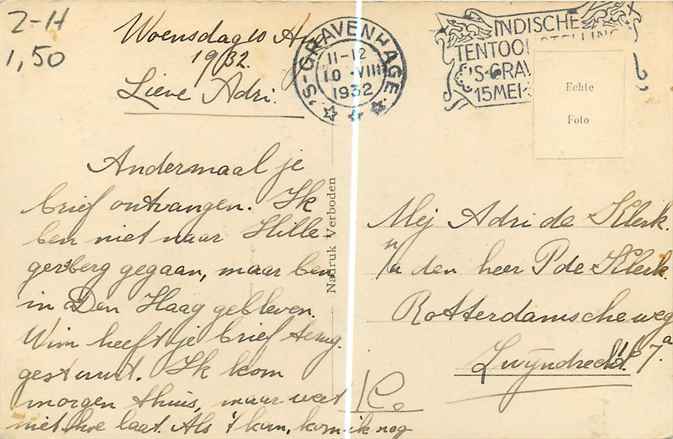 2-H
1,50
Woensdag 10 Aug
1932.
Lieve Adri.
Andermaal je
brief ontvangen. Ik
ben niet naar Hille-
gersberg gegaan, maar ben
in Den Haag gebleven.
Wim heeft je brief terug
gestuurd. Ik kom
morgen thuis, maar weet
niet hoe laat. Als 't kan, kom ik nog
Ko.
Nadruk Verboden
'S-GRAVENHAGE
11-12
10 VIII
1932
INDISCHE
TENTOONSTELLING
'S-GRAV
15 MEI-
Echte
Foto
Mej Adri de Klerk.
p/a den heer P de Klerk
Rotterdamscheweg
17a
Zwijndrecht.